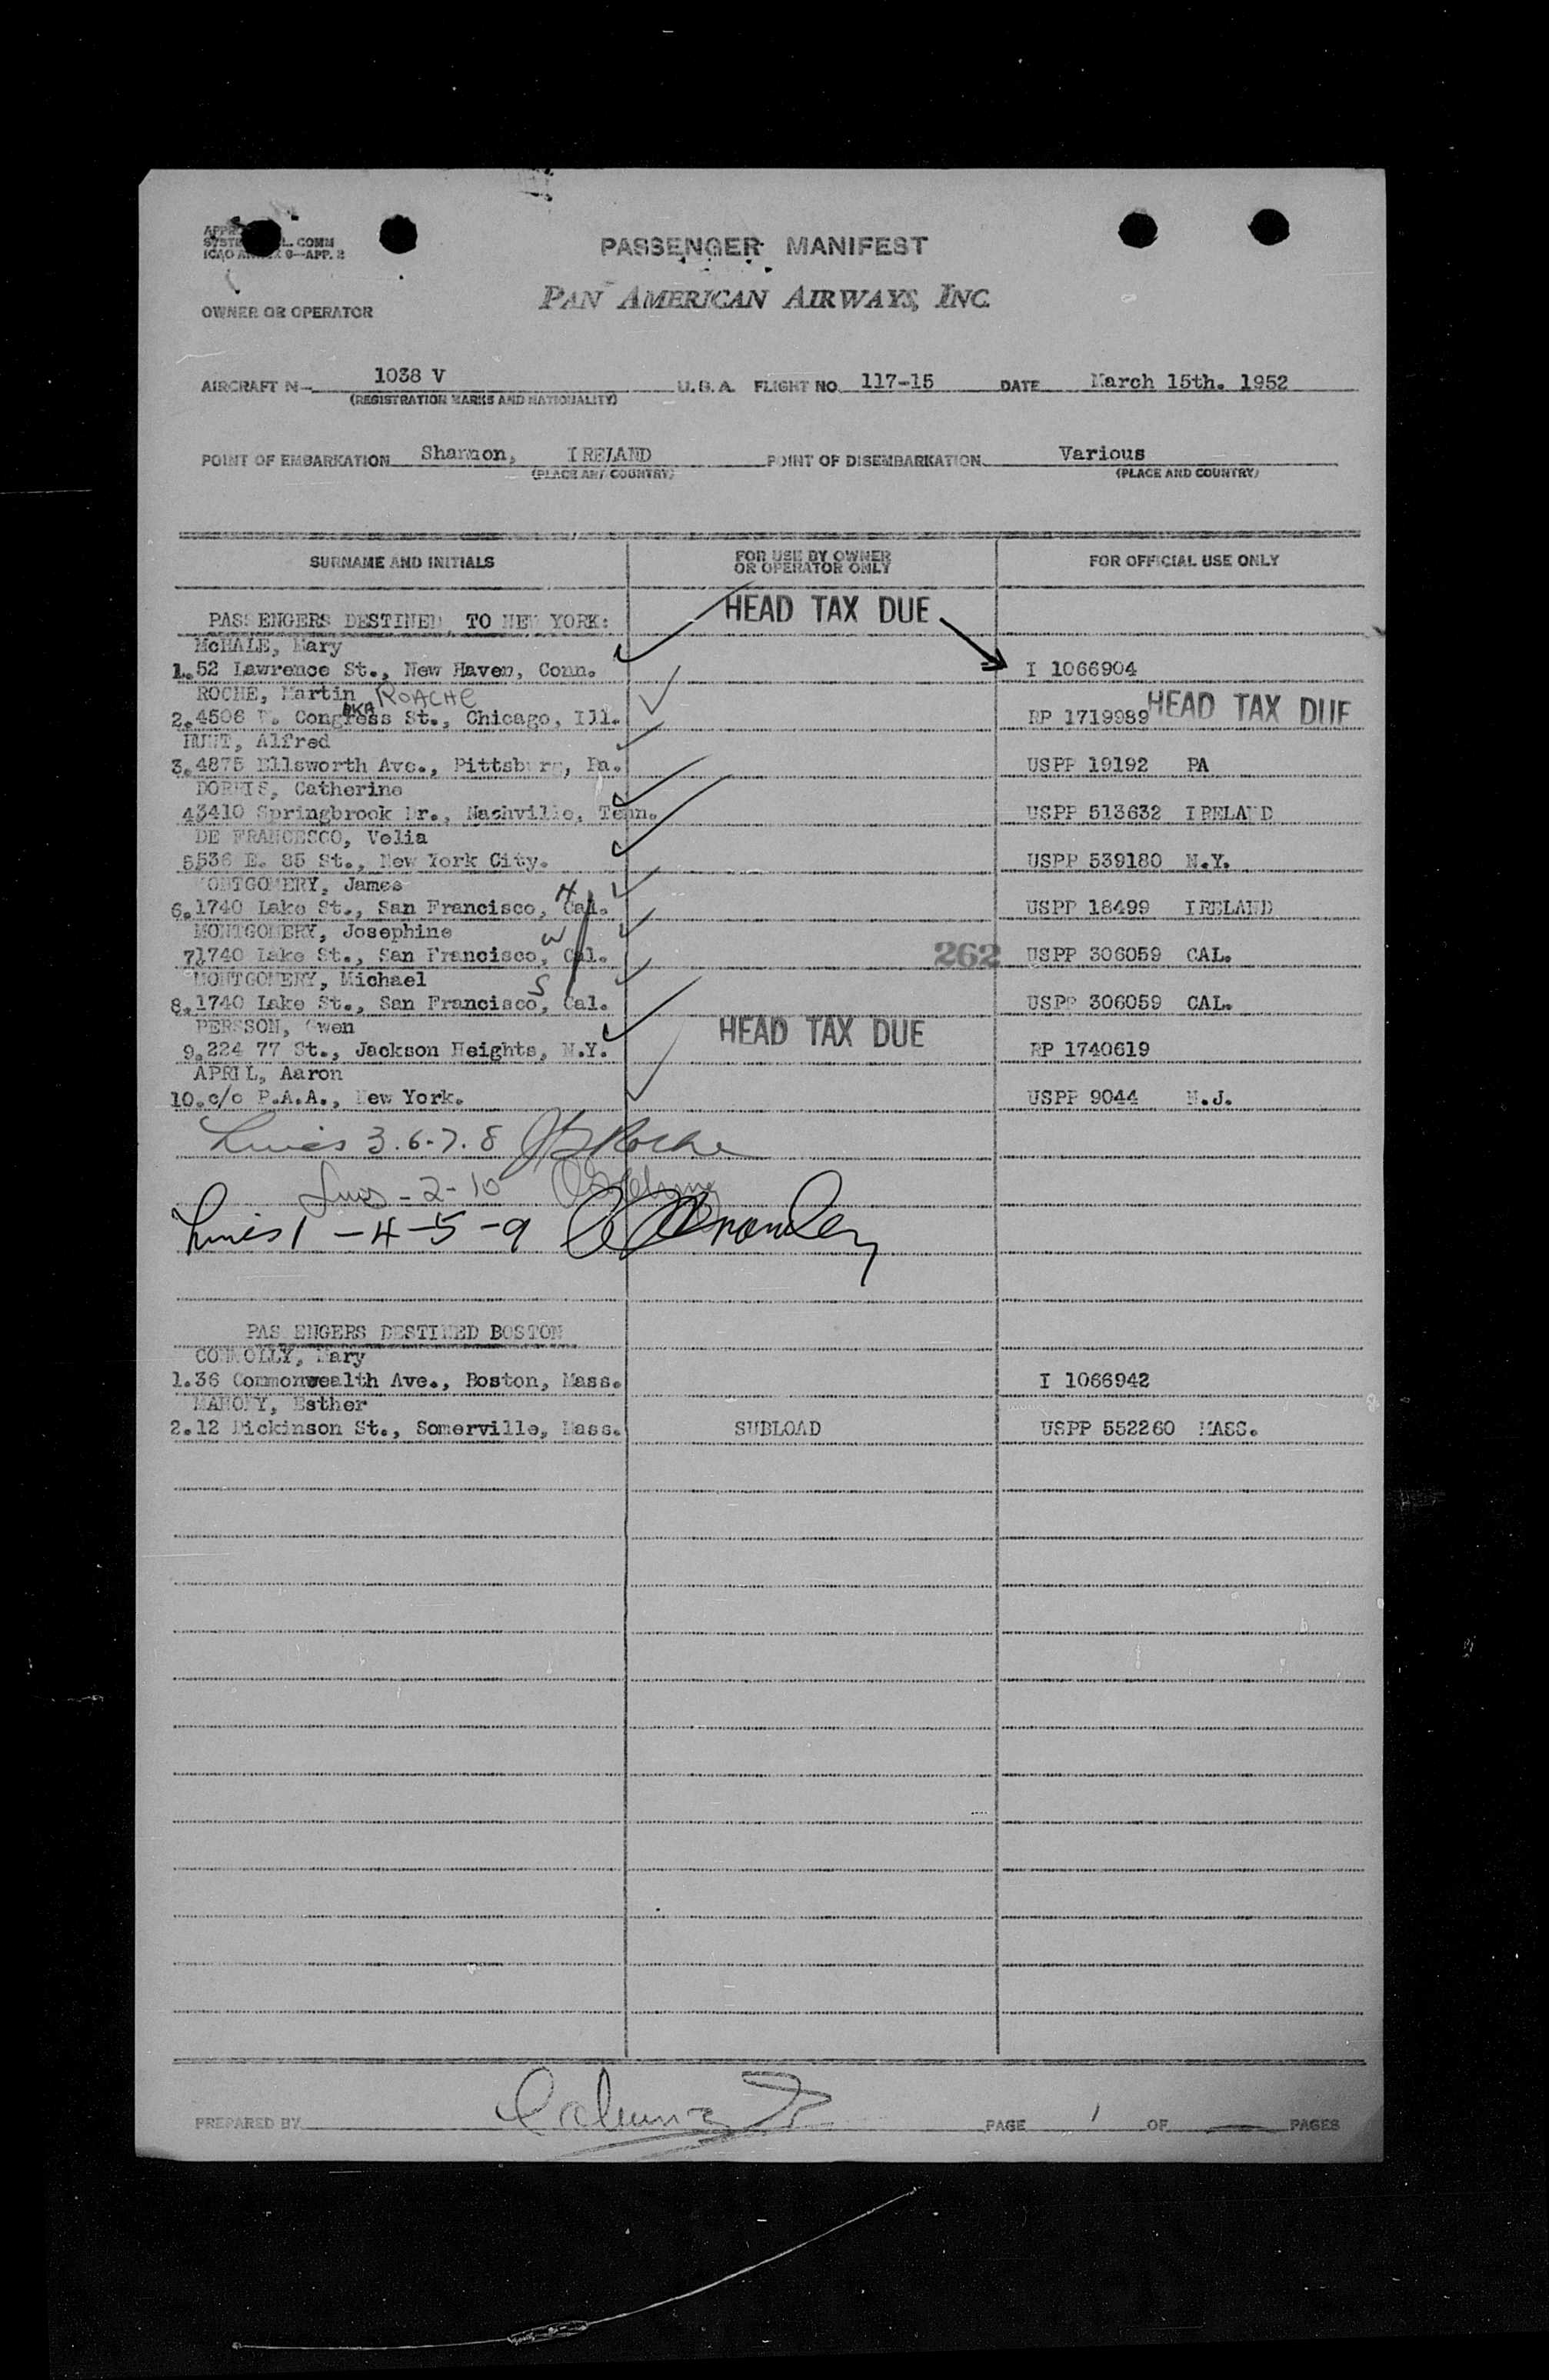 OWNER OR OPERATOR
PASSENGER MANIFEST
PAN AMERICAN AIRWAYS, INC.
AIRCRAFT N- 1038 V U.S.A. FLIGHT NO. 117-15 DATE March 15th. 1952
(REGISTRATION MARKS AND NATIONALITY)
POINT OF EMBARKATION Shannon, IRELAND POINT OF DISEMBARKATION Various
(PLACE AND COUNTRY) (PLACE AND COUNTRY)
SURNAME AND INITIALS FOR USE BY OWNER OR OPERATOR ONLY FOR OFFICIAL USE ONLY
PASSENGERS DESTINED TO NEW YORK: HEAD TAX DUE
McHALE, Mary
1. 52 Lawrence St., New Haven, Conn. I 1066904
ROCHE, Martin AKA ROACHE
2. 4506 W. Congress St., Chicago, Ill. RP 1719989 HEAD TAX DUE
HUNT, Alfred
3. 4875 Ellsworth Ave., Pittsburg, Pa. USPP 19192 PA
DORRIS, Catherine
4 3410 Springbrook Dr., Nashville, Tenn. USPP 513632 IRELAND
DE FRANCESCO, Velia
5 536 E. 85 St., New York City. USPP 539180 N.Y.
MONTGOMERY, James
6. 1740 Lake St., San Francisco, Cal. H USPP 18499 IRELAND
MONTGOMERY, Josephine
7 1740 Lake St., San Francisco, Cal. W 262 USPP 306059 CAL.
MONTGOMERY, Michael
8. 1740 Lake St., San Francisco, Cal. S USPP 306059 CAL.
PERSSON, Gwen HEAD TAX DUE
9. 224 77 St., Jackson Heights, N.Y. RP 1740619
APRIL, Aaron
10. c/o P.A.A., New York. USPP 9044 N.J.
Lines 3.6-7.8 Roche
Lines - 2-10
Lines 1 - 4-5-9
PASSENGERS DESTINED BOSTON
CONNOLLY, Mary
1. 36 Commonwealth Ave., Boston, Mass. I 1066942
MAHONY, Esther
2. 12 Dickinson St., Somerville, Mass. SUBLOAD USPP 552260 MASS.
PREPARED BY PAGE 1 OF PAGES